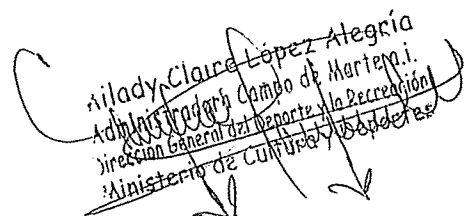 Ailady Claire López Alegría
Administradora Campo de Marte a.i.
Dirección General del Deporte y la Recreación
Ministerio de Cultura y Deportes